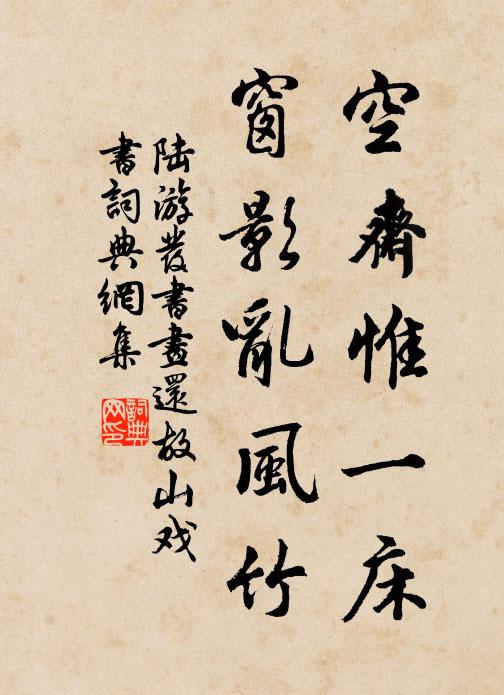 空齋惟一床
窗影亂風竹
陆游發書畫還故山戏
書詞典網集
詞典
网印